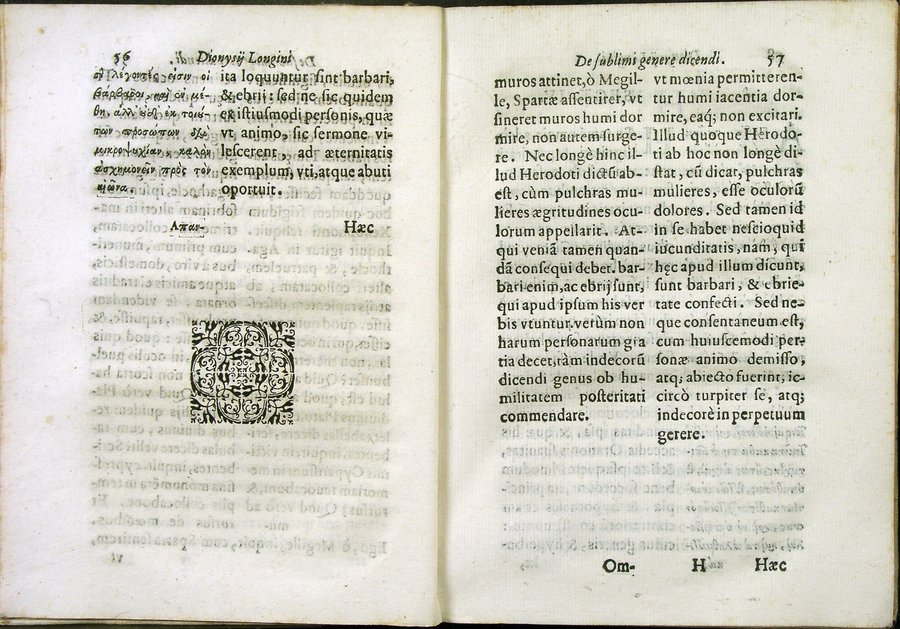 56 Dionysij Longini
οἱ λέγοντές εἰσιν οἱ
βάρβαροι, καὶ οἱ μέ-
θῃ, ἀλλ' οὐδ' ἐκ τοιύ-
των προσώπων διὰ
μικροψυχίαν, καλὸν
ἀσχημονεῖν πρὸς τὸν
αἰῶνα.
Ἁπαν-
ita loquuntur sint barbari,
& ebrii: sed ne sic quidem
ex istiusmodi personis, quæ
vt animo, sic sermone vi-
lescerent, ad æternitatis
exemplum, vti, atque abuti
oportuit.
Hæc
De sublimi genere dicendi. 57
muros attinet, ò Megil-
le, Spartæ assentirer, vt
sineret muros humi dor
mire, non autem surge-
re. Nec longè hinc il-
lud Herodoti dictũ ab-
est, cùm pulchras mu-
lieres ægritudines ocu-
lorum appellarit. At-
qui veniã tamen quan-
dã consequi debet. bar-
bari enim, ac ebrij sunt,
qui apud ipsum his ver
bis vtuntur. verùm non
harum personarum gra
tia decet, tàm indecorũ
dicendi genus ob hu-
militatem posteritati
commendare.
Om-
vt mœnia permitteren-
tur humi iacentia dor-
mire, eaq; non excitari.
Illud quoque Herodo-
ti ab hoc non longè di-
stat, cũ dicat, pulchras
mulieres, esse oculorũ
dolores. Sed tamen id
in se habet nescioquid
iucunditatis, nám, qui
hęc apud illum dicunt,
sunt barbari, & ebrie-
tate confecti. Sed ne-
que consentaneum est,
cum huiuscemodi per-
sonæ animo demisso,
atq; abiecto fuerint, ic-
circò turpiter se, atq;
indecorè in perpetuum
gerere.
H Hæc